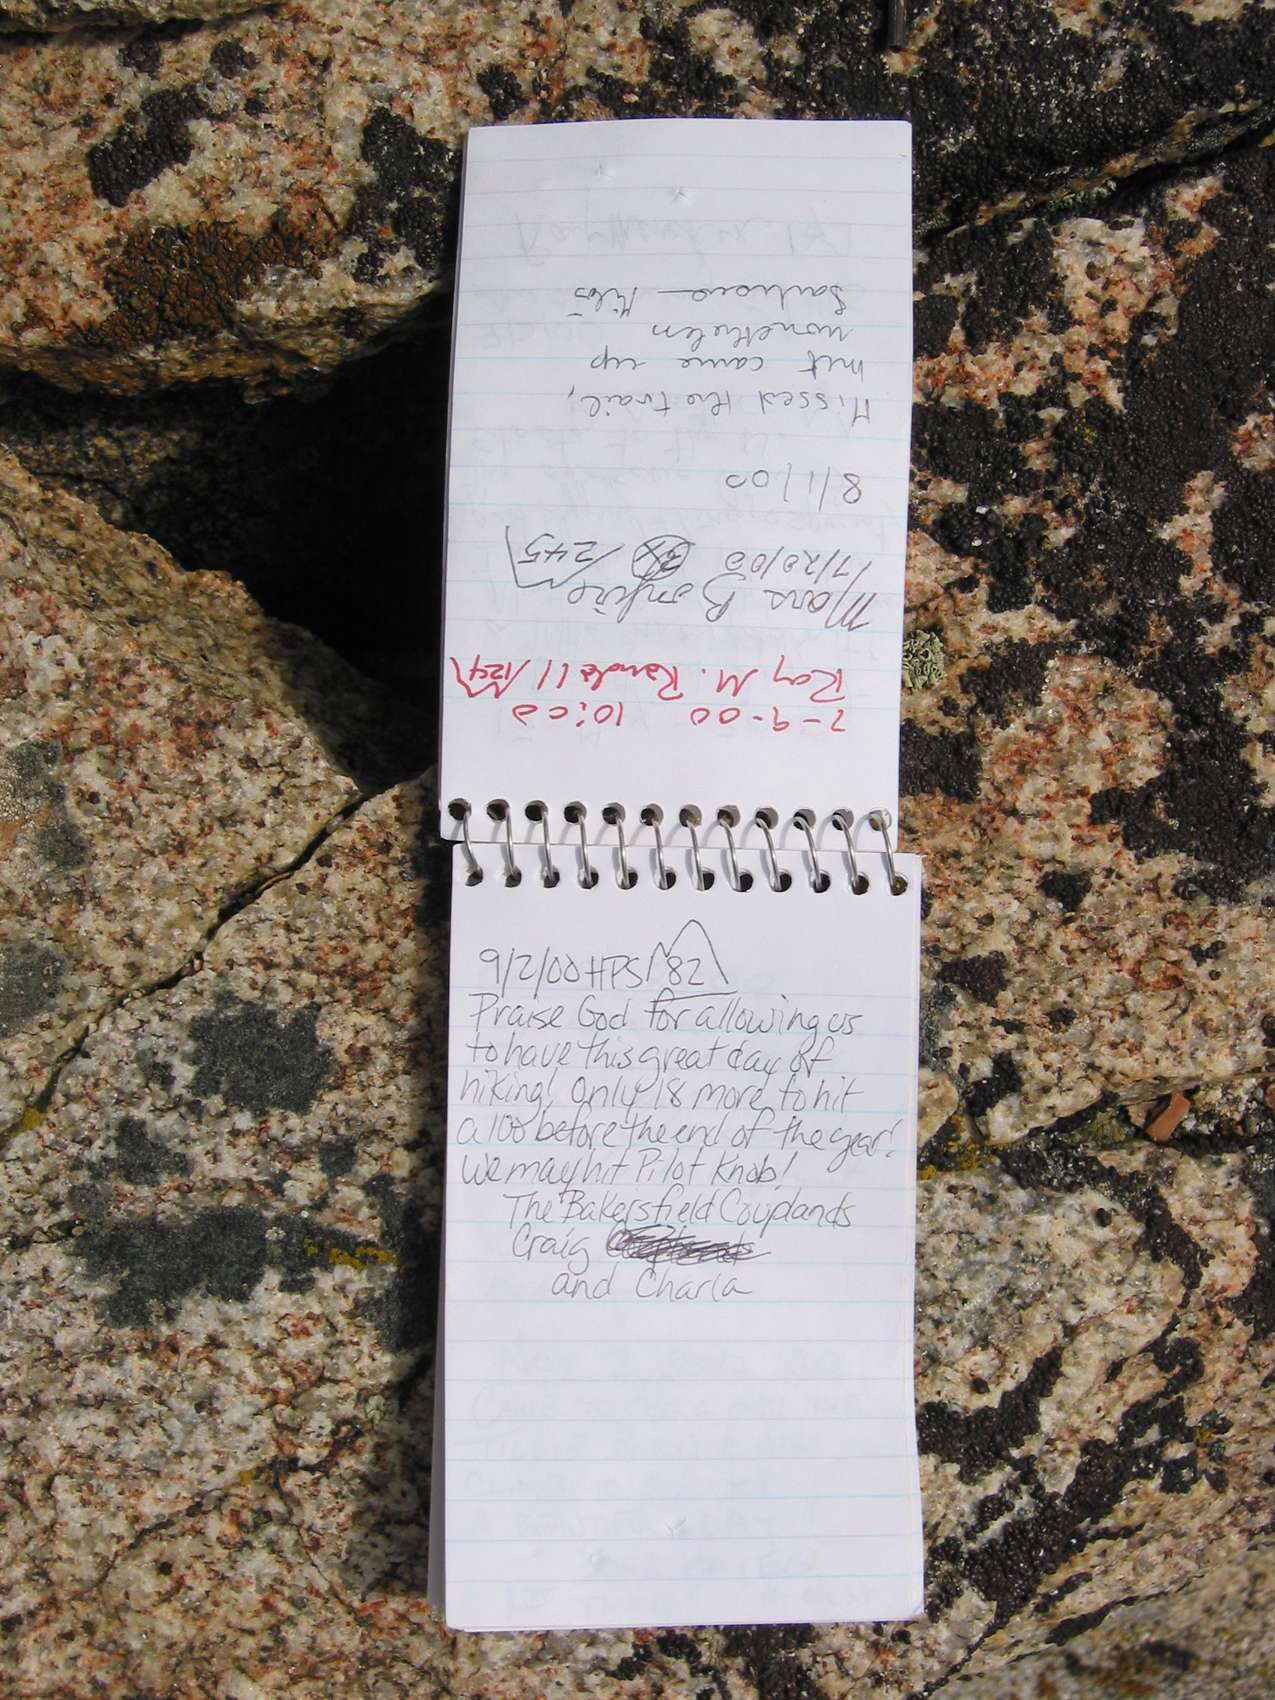 2-9-00 10:00
Ray M. Randall /124
Mars Bonfire
7/20/00 3X /245
8/1/00
Missed the trail,
but came up
nonetheless
9/2/00 HPS 82
Praise God for allowing us
to have this great day of
hiking! Only 18 more to hit
a 100 before the end of the year!
We may hit Pilot Knob!
The Bakersfield Couplands
Craig
and Charla